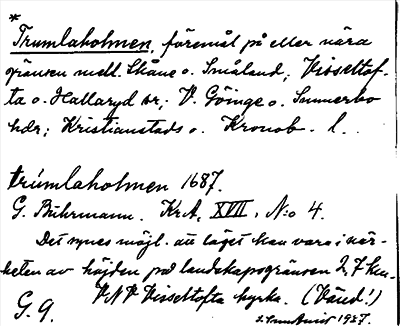 *
Trumlaholmen, föremål på eller nära
gränsen mell. Skåne o. Småland; Visseltof-
ta o. Hallaryd sr; V. Göinge o. Sunnerbo
hdr; Kristianstads o. Kronob. l.
trúmlaholmen 1687.
G. Buhrmann. KrA, XVII, N:o 4.
Det synes möjl. att läget kan vara i när-
heten av höjden på landskapsgränsen 2,7 km.
VNV Visseltofta kyrka. (Vänd!)
G. 9.
1937.